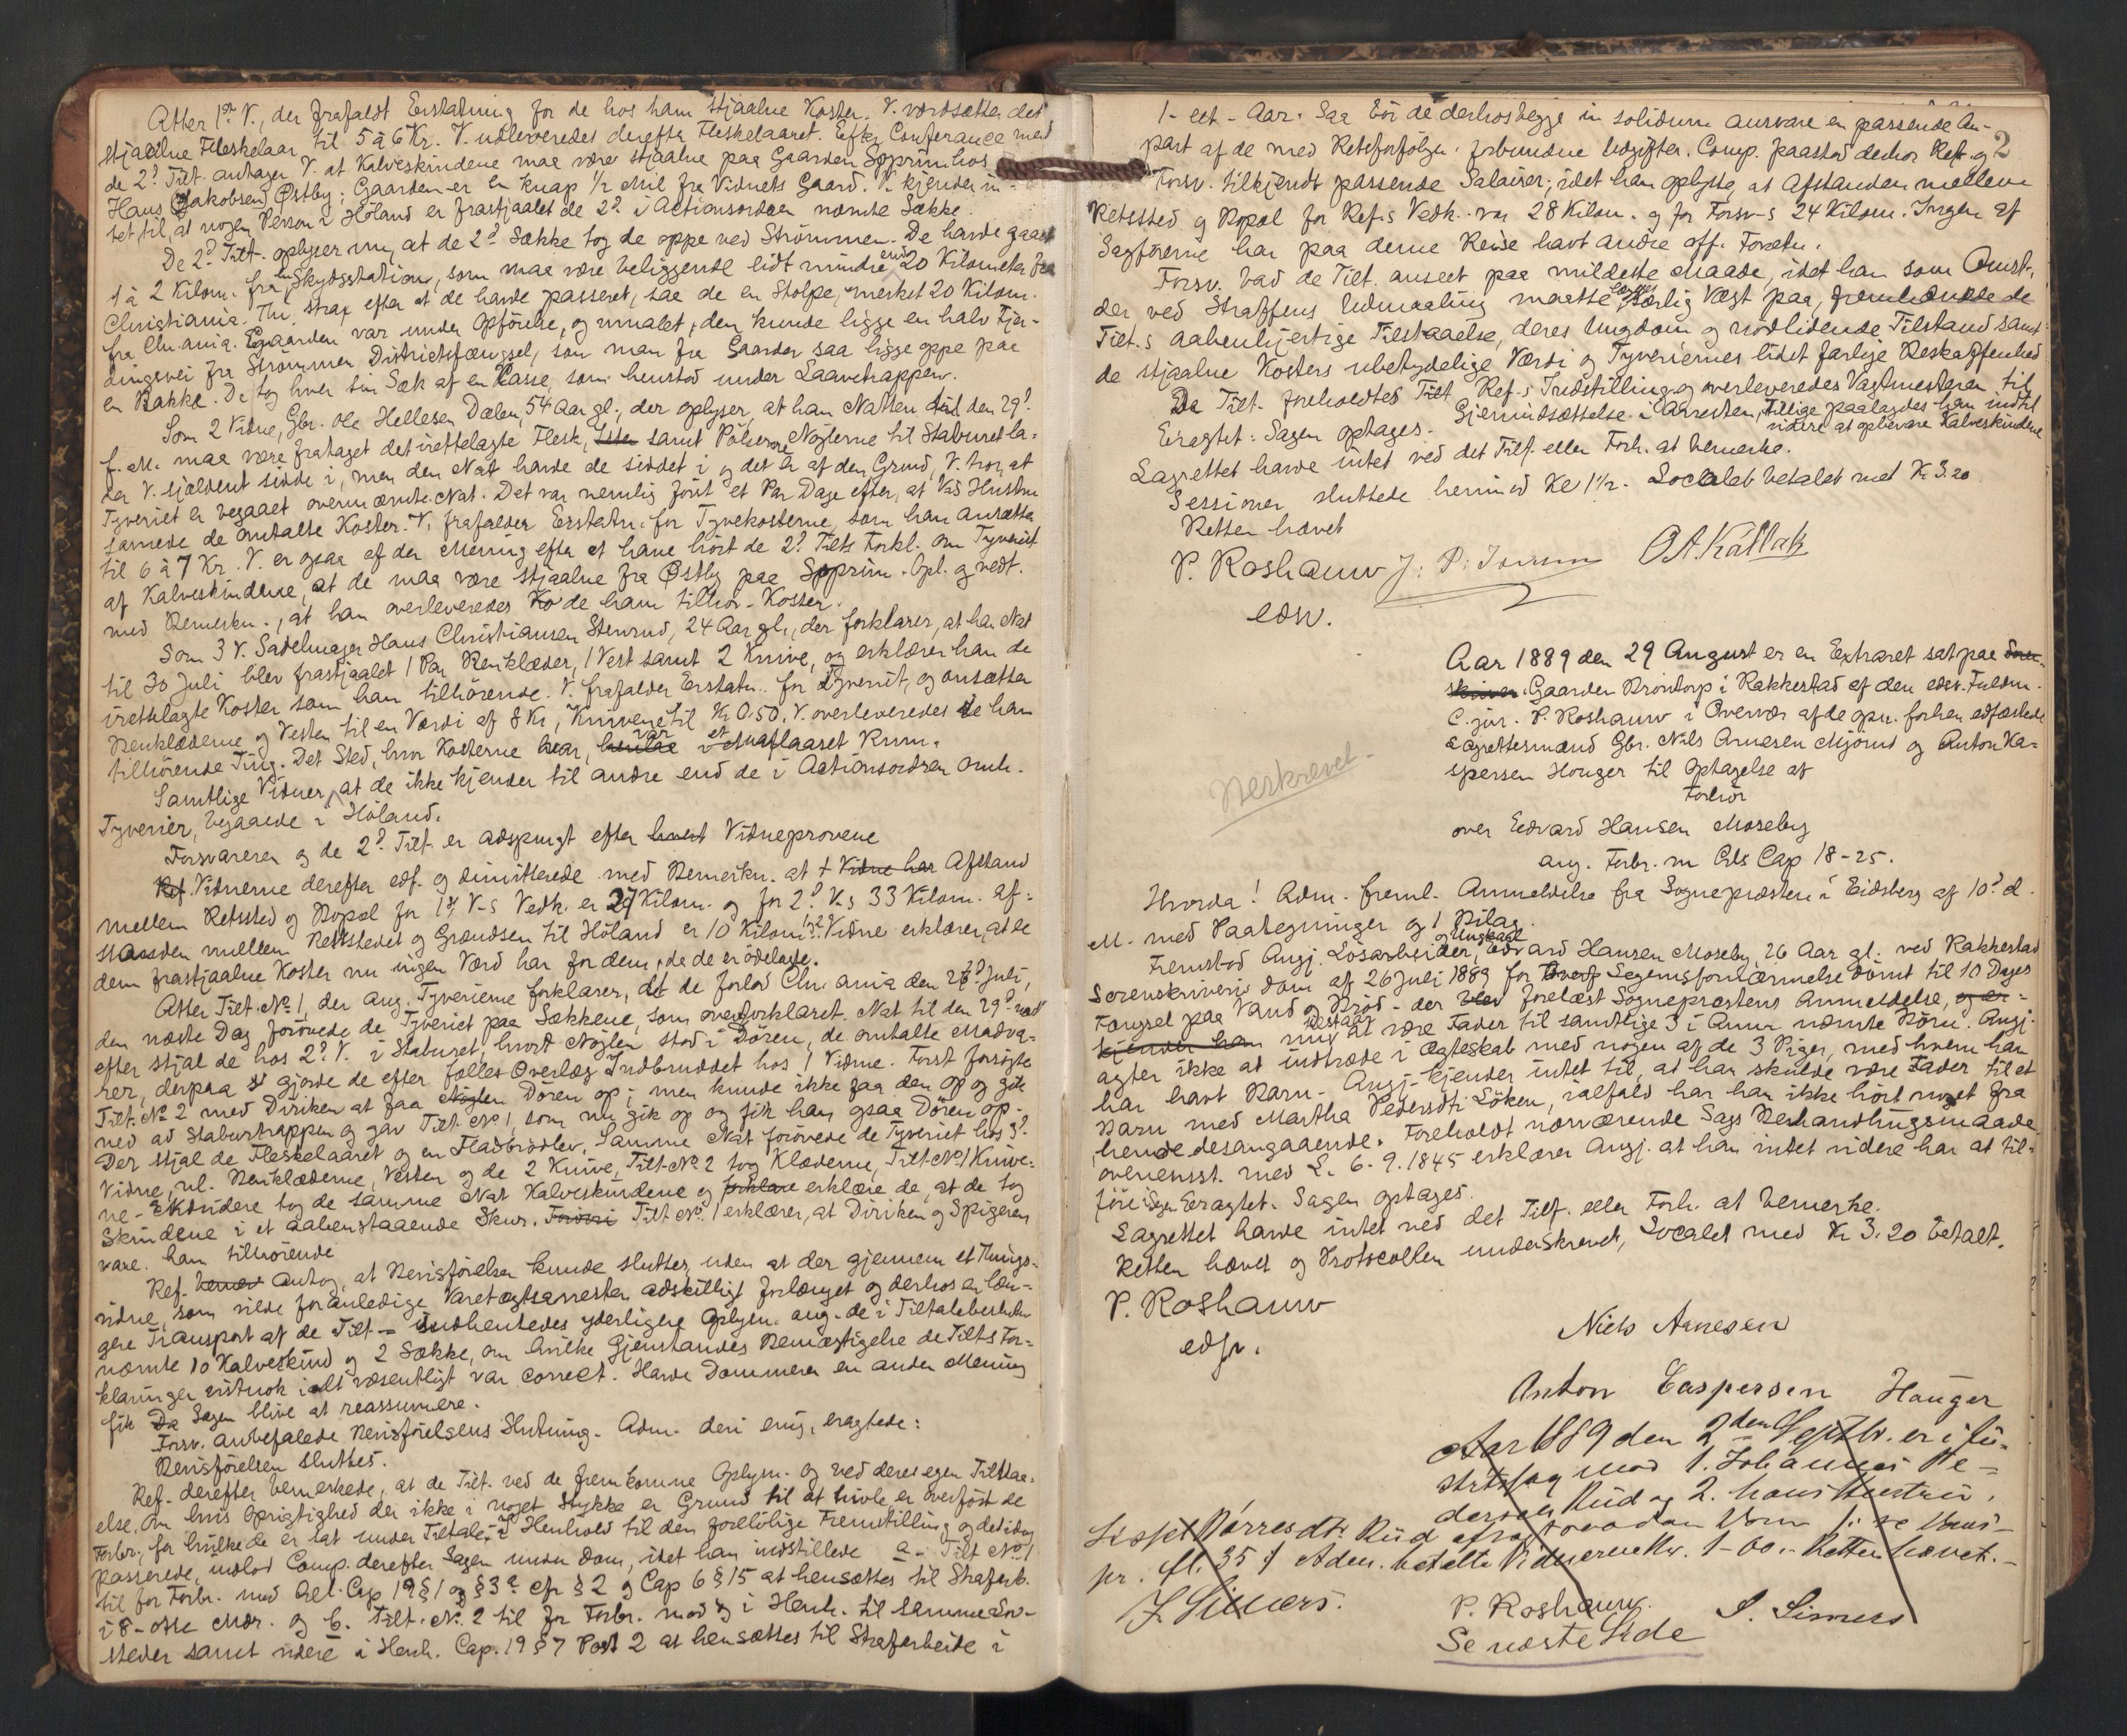 Atter 1ste V., der frafaldt Erstatning for de hos ham stjaalne Koster. V. værdsætter det
stjaalne Fleskelaar til 5 à 6 Kr. V. udleveredes derefter Fleskelaaret. Efter Conferance med
de 2de Tilt. antager V. at Kalveskindene maa være stjaalne paa Gaarden Sopprim hos
Hans Jakobsen Østby; Gaarden er en knap 1/2 Mil fra Vidnets Gaard. V. kjender in-
tet til, at nogen Person i Høland er frastjaalet de 2de i Actionsordren nævnte Sække.
De 2de Tilt. oplyser nu, at de 2de Sække tog de oppe ved Strømmen. De havde gaaet
1 à 2 Kilom. fra en Skydsstation, som maa være beliggende lidt mindre end 20 Kilometer fra
Christiania. Thi strax efter at de havde passeret, saa de en Stolpe, merket 20 Kilom.
fra Chr.ania. Gaarden var under Opførelse, og umalet, den kunde ligge en halv Fjer-
dingsvei fra Strømmen Districtsfængsel, som man fra Gaarden saa ligge oppe paa
en Bakke. De tog hver sin Sæk af en Kasse, som henstod under Laavetrappen.
Som 2 Vidne, Gbr. Ole Hellesen Dælen, 54 Aar gl., der oplyser, at han Natten til den 29de
f. M. maa være frataget det irettelagte Flesk, samt Pølserne. Nøglerne til Staburet la-
der V. sjældent sidde i, men den Nat havde de siddet i og det er af den Grund, V. tror, at
Tyveriet er begaaet ovennævnte Nat. Det var nemlig først et Par Dage efter, at V.s Hustru
savnede de omtalte Koster. V. frafalder Erstatn. for Tyvekosterne, som han ansætter
til 6 à 7 Kr. V. er ogsaa af den Mening efter at have hørt de 2de Tilts Forkl. om Tyveriet
af Kalveskindene, at de maa være stjaalne fra Østby paa Sopprim. Opl. og vedt.
med Bemerkn., at han overleveredes de ham tilhør. Koster.
Som 3 V. Sadelmager Hans Christiansen Stenrud, 24 Aar gl., der forklarer, at han Nat
til 30 Juli blev frastjaalet 1 Par Benklæder, 1 Vest samt 2 Knive, og erklærer han de
irettelagte Koster som ham tilhørende. V. frafalder Erstatn. for Tyveriet, og ansætter
Benklæderne og Vesten til en Værdi af 8 Kr, Knivene til Kr 0.50. V. overleveredes de ham
tilhørende Ting. Det Sted, hvor Kosterne var, var et uaflaaset Rum.
Samtlige Vidner, at de ikke kjender til andre end de i Actionsordren omh.
Tyverier, begaaede i Høland.
Forsvareren og de 2de Tilt. er adspurgt efter hvert Vidneprovene
Vidnerne derefter edf. og dimitterede med Bemerkn. at Afstand
mellem Retssted og Bopæl for 1ste V-s Vedk. er 27 Kilom. og for 2de V.s 33 Kilom. af:
standen mellem Retstedet og Grændsen til Høland er 10 Kilom. 1 & 2 Vidne erklærer, at de
dem frastjaalne Koster nu ingen Værd har for dem, da de er ødelagte.
Atter Tilt. No 1, der ang. Tyverierne forklarer, at de forlod Chr.ania den 27de Juli,
den næste Dag forøvede de Tyveriet paa Sækkene, som ovenforklaret. Nat til den 29de
efter stjal de hos 2de V. i Staburet, hvor Nøglen stod i Døren, de omtalte Madva-
rer, derpaa gjorde de efter fælles Overlæg Indbruddet hos 1 Vidne. Først forsøgte
Tilt. No 2 med Diriken at faa Døren op; men kunde ikke faa den op og gik
ned ad Staburtrappen og gav Tilt. No 1, som nu gik op og fik han ogsaa Døren op.
Der stjal de Fleskelaaret og en Fladbrødlev. Samme Nat forøvede de Tyveriet hos 3die
Vidne, nl. Benklæderne, Vesten og de 2 Knive, Tilt. No 2 tog Klæderne, Tilt. No 1 Knive-
ne. Endvidere tog de samme Nat Kalveskindene og forklare erklære de, at de tog
Skindene i et aabenstaaende Skur. Tilt. No. 1 erklærer, at Diriken og Spigeren
vare ham tilhørende
Ref. antog, at Bevisførelsen kunde sluttes, uden at der gjennem et Things-
vidne, som vilde foranledige Varetægtsarresten adskilligt forlænget og derhos en læn-
gere Transport af de Tilt. indhentedes yderligere Oplysn. ang. de i Tiltalebeslutn.
nævnte 10 Kalveskind og 2 Sække, om hvilke Gjenstandes Bemægtigelse de Tilts For-
klaringer vistnok i alt væsentligt var correct. Havde Dommeren en anden Mening
fik Sagen blive at reassumere.
Forsv. anbefalede Bevisførelsens Slutning. Adm. deri enig, eragtede:
Bevisførelsen sluttes.
Ref. derefter bemerkede, at de Tilt. ved de fremkomne Oplysn. og ved deres egen Tilstaa-
else, om hvis Oprigtighed der ikke i noget Stykke er Grund til at tvivle, er overført de
Forbr., for hvilke de er sat under Tiltale. I Henhold til den foreløbige Fremstilling og det idag
passerede, indlod Comp. derefter Sagen under Dom, idet han indstillede a. Tilt. No 1
til for Forbr. mod Crl. Cap 19 § 1 og § 3 a cfr § 2 og Cap 6 § 15 at hensættes til Strafarb.
i 8 - otte Mdr. og b. Tilt. No. 2 til for Forbr. mod og i Henh. til samme Lov-
steder samt videre i Henh. Cap. 19 § 7 Post 2 at hensættes til Strafarbeide i
2
1 - eet - Aar. Saa bør de derhos begge in solidum ansvare en passende An-
part af de med Retsforfølgn. forbundne Udgifter. Comp. paastod derhos Ref. og
Forsv. tilkjendt passende Salairer; idet han oplyste, at Afstanden mellem
Retssted og Bopæl for Ref.s Vedk. var 28 Kilom. og for Forsv-s 24 Kilom. Ingen af
Sagførerne har paa denne Reise havt andre off. Forretn.
Forsv. bad de Tilt. anseet paa mildeste Maade, idet han som Omst.
der ved Straffens Udmaaling maatte lægges særlig Vægt paa, fremhævede de
Tilt.s aabenhjertige Tilstaaelse, deres Ungdom og nødlidende Tilstand samt
de stjaalne Kosters ubetydelige Værdi og Tyveriernes lidet farlige Beskaffenhed
De Tilt. foreholdtes Ref.s Indstilling og overleveredes Vagtmesteren til
Gjenindsættelse i Arresten, tillige paalagdes han indtil
videre at opbevare Kalveskindene
Eragtet: Sagen optages.
Lagrettet havde intet ved det Tilf. eller Forh. at bemerke.
Sessionen sluttede hermed Kl 1 1/2. Localet betalet med Kr 3.20
Retten hævet
P. Roshauw J. P. Ioursen O. A. Kallak
edsv.
Aar 1889 den 29 August er en Extraret sat paa
Gaarden Brøntorp i Rakkestad af den edsv. Fuldm.
C. jur. P. Roshauw i Overvær af de opn. forhen edfæstede
Lagrettesmænd Gbr. Nils Arnesen Mjørud og Anton Ka-
spersen Houger til Optagelse af
Forhør
over Edvard Hansen Moseby
ang. Forbr. m Crls Cap 18-25.
Beskrevet.
Hvorda! Adm. freml. Anmeldelse fra Sognepræsten i Eidsberg af 10de d.
M. med Paategninger og 1 Bilag.
Fremstod Angj. Løsarbeider og Ungkarl Edvard Hansen Moseby, 26 Aar gl. ved Rakkestad
Sorenskriveris Dom af 26 Juli 1889 for Legemsfornærmelse dømt til 10 Dages
Fængsel paa Vand og Brød - der forelæst Sognepræstens Anmeldelse, og er-
kjender han vedstaar at være Fader til samtlige 3 i Anm. nævnte Børn. Angj.
agter ikke at indtræde i Ægteskab med nogen af de 3 Piger, med hvem han
har havt Barn. Angj. kjender intet til, at han skulde være Fader til et
Barn med Martha Pedersdtr Løken, ialfald har han ikke hørt noget fra
hende desangaaende. Foreholdt nærværende Sags Behandlingsmaade
overensst. med L. 6. 9. 1845 erklærer Angj. at han intet videre har at til-
føie Sagen. Eragtet. Sagen optages.
Lagrettet havde intet ved det Tilf. eller Forh. at bemerke.
Retten hævet og Protocollen underskrevet, Localet med Kr 3.20 betalt.
P. Roshauw
edsv.
Niels Arnesen
Anton Caspersen Hauger
Aar 1889 den 2den Septbr. er i Ju-
stitssag mod 1. Johannes Pe-
dersen Rud og 2. hans Hustru,
Lispet Børresdtr Rud
pr. Kl. 35 Adm. betalte Vidnerne Kr. 1-60. Retten hævet.
J. Simers.
P. Roshauw. S. Simers
Se næste Side